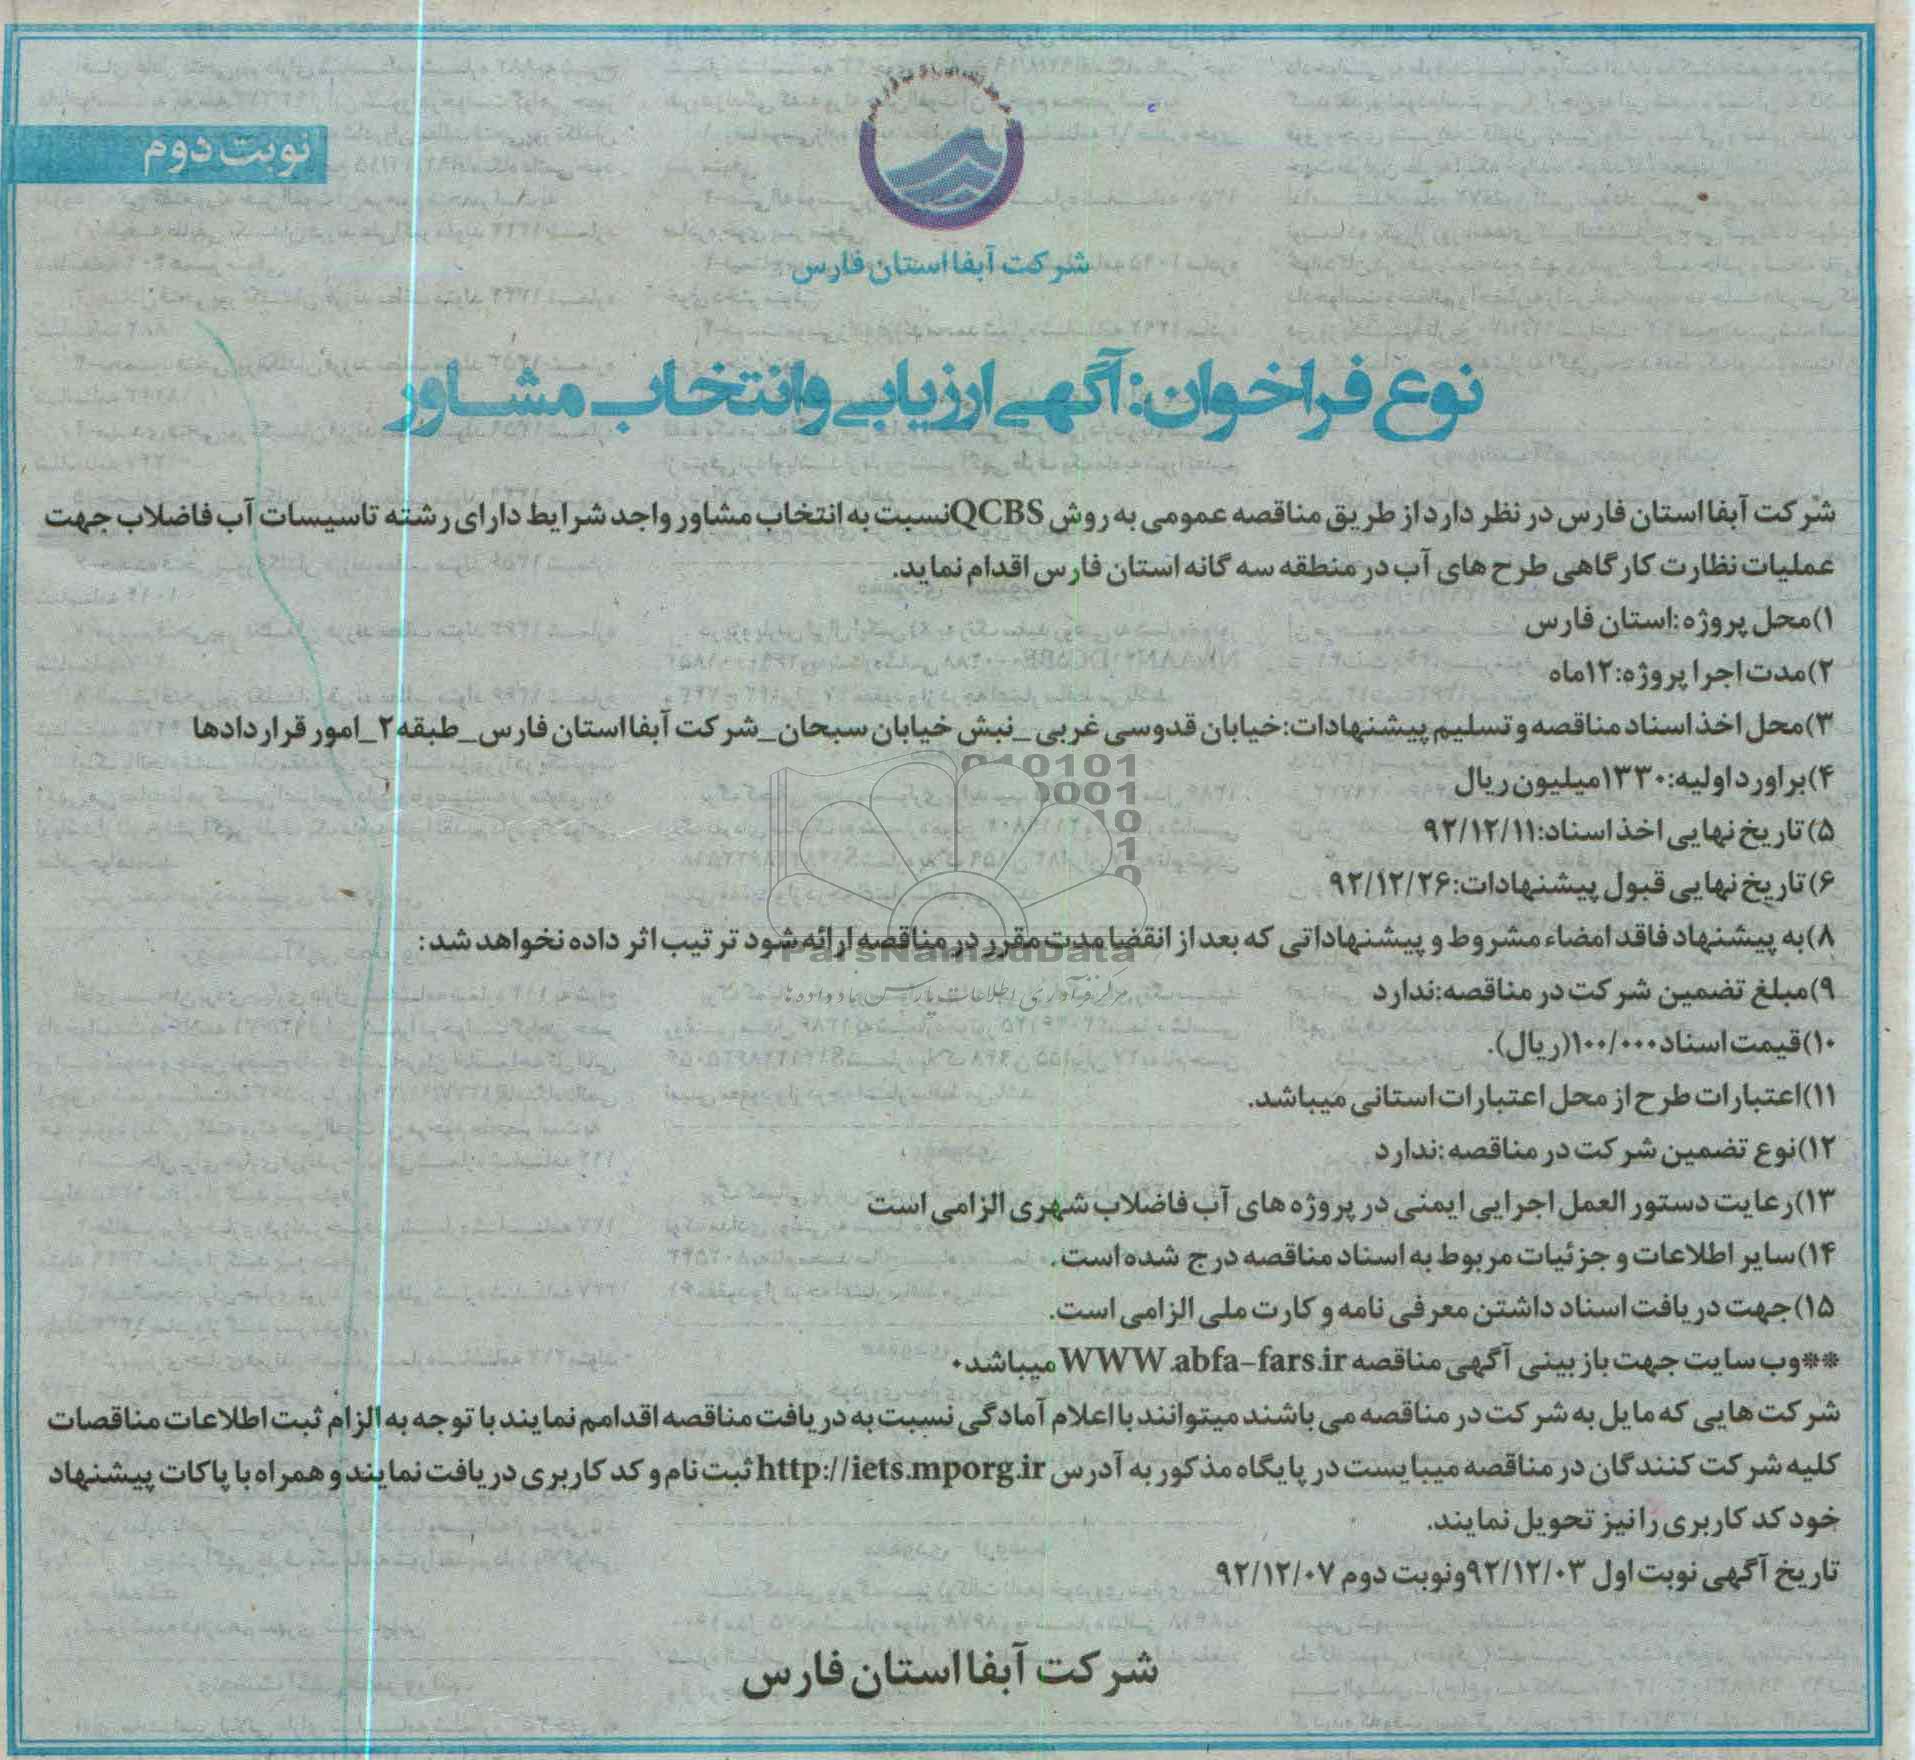 نوبت دوم
شرکت آبفا استان فارس
نوع فراخوان: آگهی ارزیابی و انتخاب مشاور
شرکت آبفا استان فارس در نظر دارد از طریق مناقصه عمومی به روش QCBS نسبت به انتخاب مشاور واجد شرایط دارای رشته تاسیسات آب فاضلاب جهت
عملیات نظارت کارگاهی طرح های آب در منطقه سه گانه استان فارس اقدام نماید.
۱)محل پروژه :استان فارس
۲)مدت اجرا پروژه:۱۲ماه
۳)محل اخذ اسناد مناقصه و تسلیم پیشنهادات:خیابان قدوسی غربی _نبش خیابان سبحان_شرکت آبفا استان فارس_طبقه۲_امور قراردادها
۴)براورد اولیه:۱۳۳۰میلیون ریال
۵) تاریخ نهایی اخذ اسناد:۹۲/۱۲/۱۱
۶) تاریخ نهایی قبول پیشنهادات:۹۲/۱۲/۲۶
۸)به پیشنهاد فاقد امضاء مشروط و پیشنهاداتی که بعد از انقضا مدت مقرر در مناقصه ارائه شود ترتیب اثر داده نخواهد شد:
۹)مبلغ تضمین شرکت در مناقصه:ندارد
۱۰)قیمت اسناد۱۰۰/۰۰۰(ریال).
۱۱)اعتبارات طرح از محل اعتبارات استانی میباشد.
۱۲)نوع تضمین شرکت در مناقصه :ندارد
۱۳)رعایت دستور العمل اجرایی ایمنی در پروژه های آب فاضلاب شهری الزامی است
۱۴)سایر اطلاعات و جزئیات مربوط به اسناد مناقصه درج شده است.
۱۵)جهت دریافت اسناد داشتن معرفی نامه و کارت ملی الزامی است.
**وب سایت جهت بازبینی آگهی مناقصه WWW.abfa-fars.ir میباشد.
شرکت هایی که مایل به شرکت در مناقصه می باشند میتوانند با اعلام آمادگی نسبت به دریافت مناقصه اقدامم نمایند با توجه به الزام ثبت اطلاعات مناقصات
کلیه شرکت کنندگان در مناقصه میبایست در پایگاه مذکور به آدرس http://iets.mporg.ir ثبت نام و کد کاربری دریافت نمایند و همراه با پاکات پیشنهاد
خود کد کاربری را نیز تحویل نمایند.
تاریخ آگهی نوبت اول ۹۲/۱۲/۰۳ونوبت دوم ۹۲/۱۲/۰۷
شرکت آبفا استان فارس
ParsNamadData
مرکز فرآوری اطلاعات پارس نماد داده ها